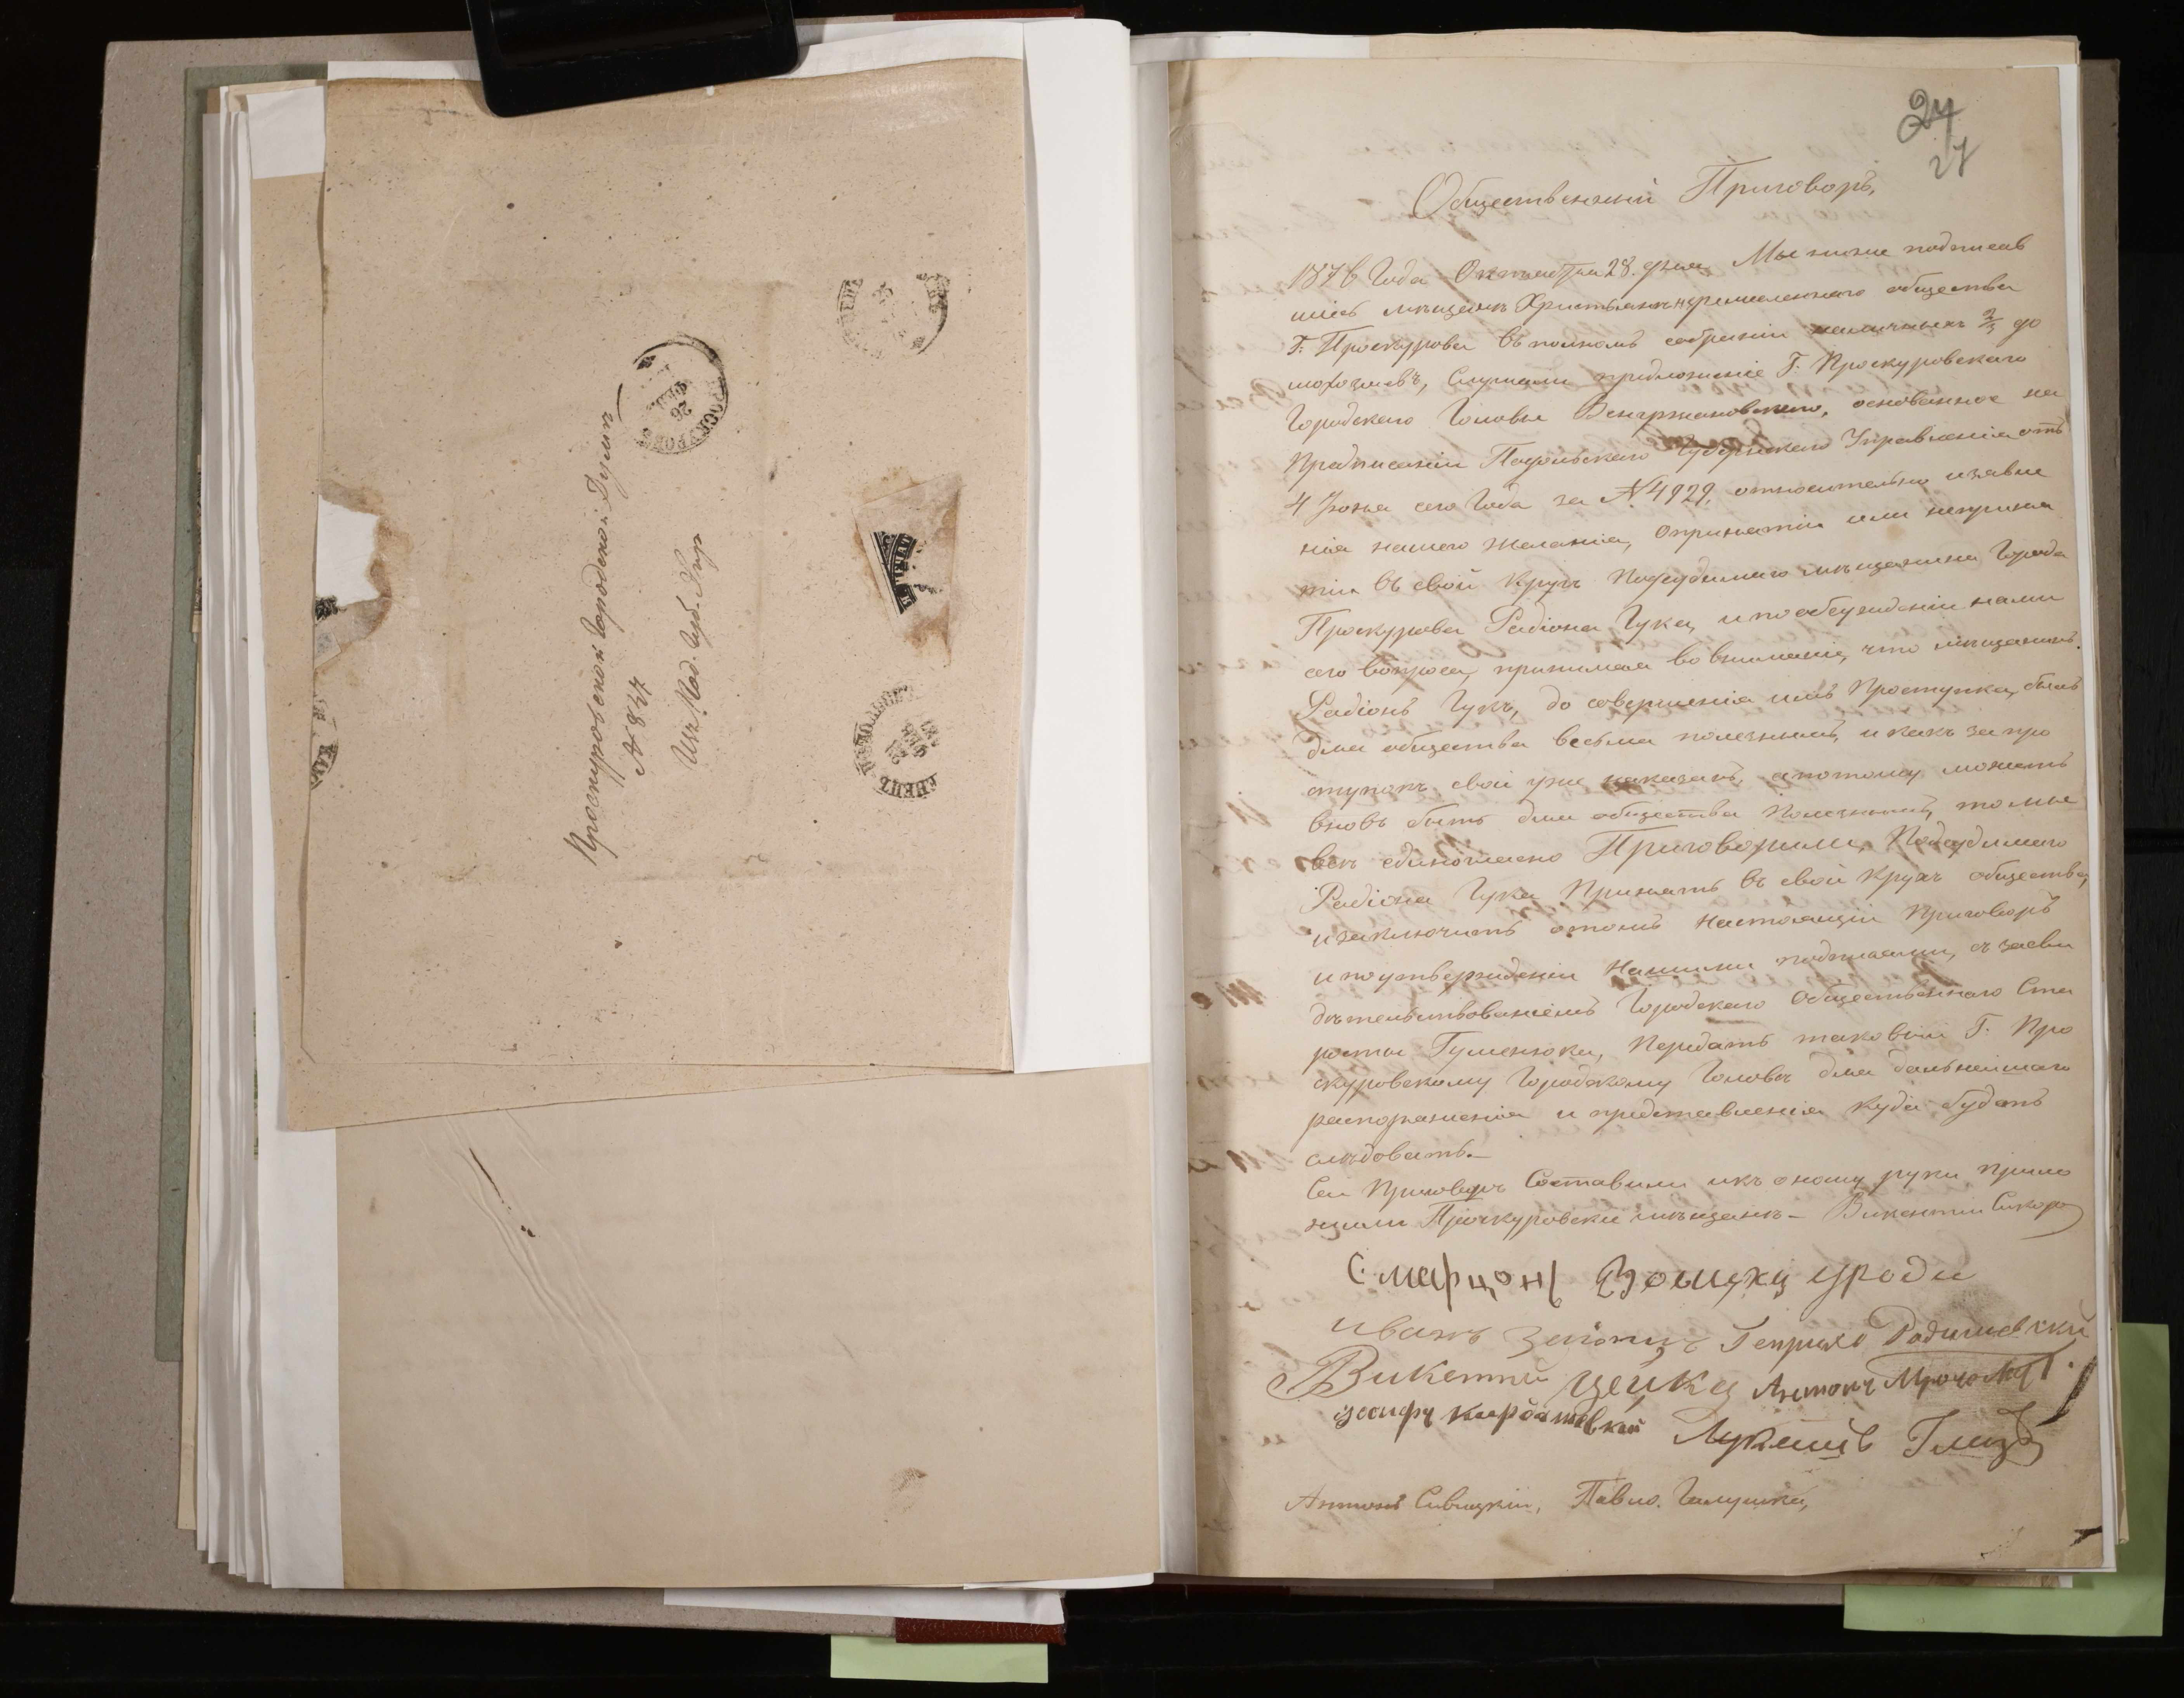 Проскуровской Городской Думѣ
№ 847
Изъ Под. Губ. Упр
ПРОСКУРОВЪ
26
24
27
Общественный Приговоръ,
187 Года Октября 28. дня Мы ниже подписав
шіеся мѣщане Христіане общества
Г. Проскурова въ полномъ собраніи наличныхъ 2/3 до
мохозяевъ, Слушали предложеніе Г. Проскуровскаго
Городскаго Головы основанное на
Предписаніи Подольскаго Губернскаго Управленія отъ
4 Іюня сего Года за № 4929, относительно изявле
нія нашего Желанія, Опринятіи или неприня
тіи въ свой Кругъ Подсудимаго мѣщанина Города
Проскурова Радіона Гука, и по обсужденіи нами
сего вопроса, принимая во вниманіе, что мѣщанинъ
Радіонъ Гукъ, до совершенія имъ Проступка, былъ
для общества весьма полезнымъ, и какъ за про
ступокъ свой уже наказанъ, а потому можетъ
вновь быть для общества Полезнымъ, то мы
всѣ единогласно Приговорили, Подсудимаго
Радіона Гука Принять въ свой Кругъ общества,
и заключить отомъ Настоящій Приговоръ
и по утвержденіи Нашими подписами, съ засви
дѣтельствованіемъ Городскаго Общественнаго Ста
росты Гуменюка, Передать таковый Г. Про
скуровскому Городскому Головѣ для дальнейшаго
распоряженія и представленія куда будетъ
слѣдовать.—
Сей Приговоръ Составили икъ оному руки прило
жили Проскуровскіе мѣщане — Викентій Сикора
иванъ Генрихъ Радишевскій
Викетий Цейка Антонъ
Лукашъ
Антонъ Савицкій, Павло. Галушка,